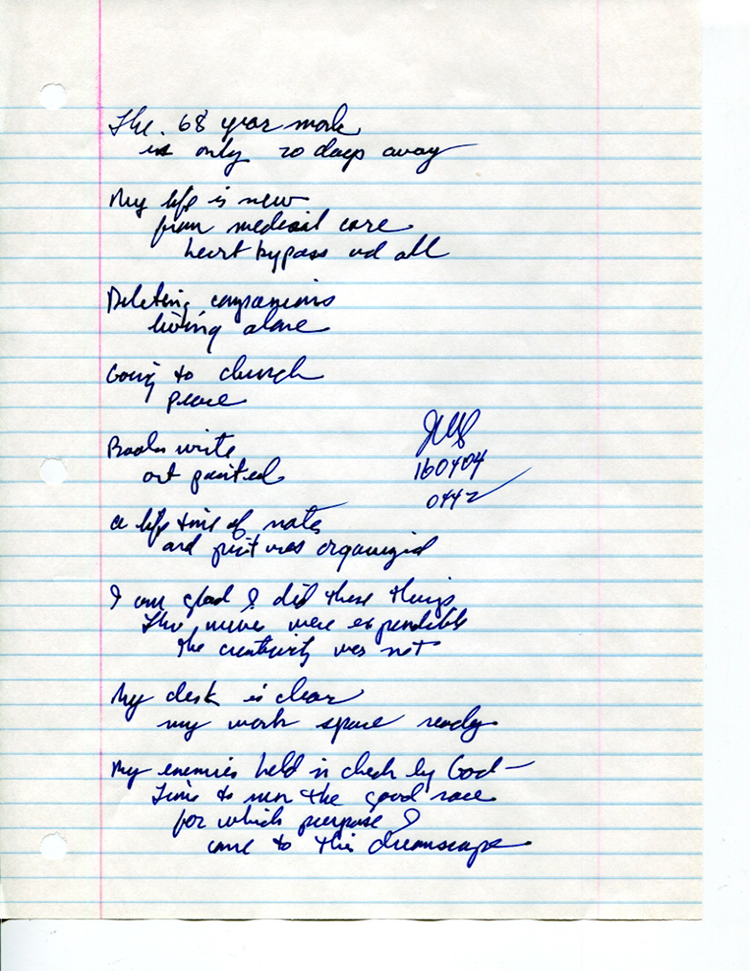 The. 68 year mark
is only 20 days away
My life is new
from medical care
heart bypass and all
Deleting companions
living alone
Going to church
peace
Books write
art painted
160404
0442
a life time of notes
and pictures organized
I am glad I did these things
The were expendible
the creativity was not
My desk is clear
my work space ready
My enemies held in check by God—
Time to run the good race
for which purpose I
come to this dreamscape